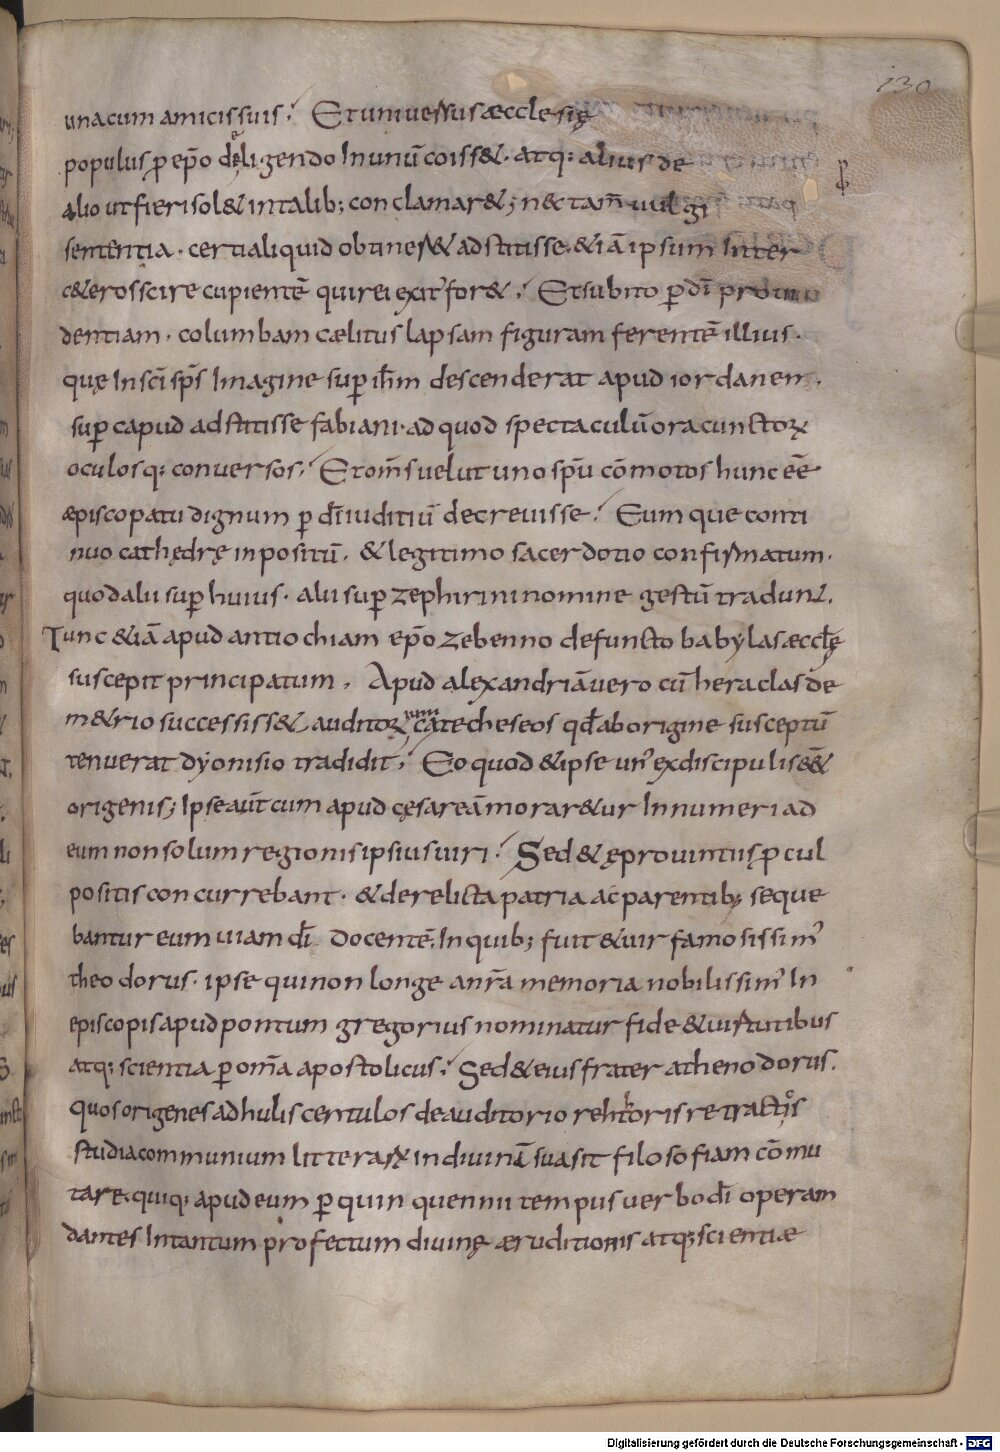 130
unacum amicis suis; Et uniuersus æcclesię
populus p̱ ep̄o deligendo In unū coiss&. atq: alius de
alio ut fieri sol& in talib; conclamar&; n& tam̄ uulgi
sententia. certi aliquid obtiner& adstitisse. &iā ipsum Inter
c&eros scire cupientē qui rei exit' for&; Et subito p̱ dī proui
dentiam. columbam cælitus lapsam figuram ferentē illius.
quę In sc̄i sp̄s Imagine sup̱ ih̄m descenderat apud iordanem.
sup̱ capud adstitisse fabiani. ad quod spectaculū ora cunctoꝝ
oculosq; conuersos; Et om̄s uelut uno sp̄u cōmotos hunc ēē
æpiscopatu dignum p̱ dī iuditiū decreuisse; Eumque conti
nuo cathędrę inpositū. & legitimo sacerdotio confirmatum.
quod alii sup̱ huius. alii sup̱ zephirini nomine gestū tradunt.
Tunc &iā apud antiochiam ep̄o zebenno defuncto babylas æccl̄ę
suscepit principatum. Apud alexandriā uero cū heraclas de
m&rio successiss&. auditoꝝ catecheseos qđ ab origine susceptū
rum
tenuerat dyonisio tradidit; Eo quod & ipse un' ex discipulis ēē&
origenis; Ipse aut̄ cum apud cęsareā morar&ur Innumeri ad
eum non solum regionis ipsius uiri; Sed & ę prouintiis p̱cul
positis concurrebant. & derelicta patria ac parentib; seque
bantur eum uiam dī docentē; In quib; fuit & uir famosissim'
theodorus. ipse qui non longe a nr̄a memoria nobilissim' In
episcopis apud pontum gregorius nominatur fide & uirtutibus
atq; scientia p̱ om̄a apostolicus; Sed & eius frater athenodorus.
quos origenes adhuliscentulos de auditorio rehtoris retractos
studia communium litteraꝝ in diuinā suasit filosofiam cōmu
tare. quiq; apud eum p̱ quinquennii tempus uerbo dī operam
dantes Intantum profectum diuinę æruditionis atq; scientiæ
Digitalisierung gefördert durch die Deutsche Forschungsgemeinschaft - DFG